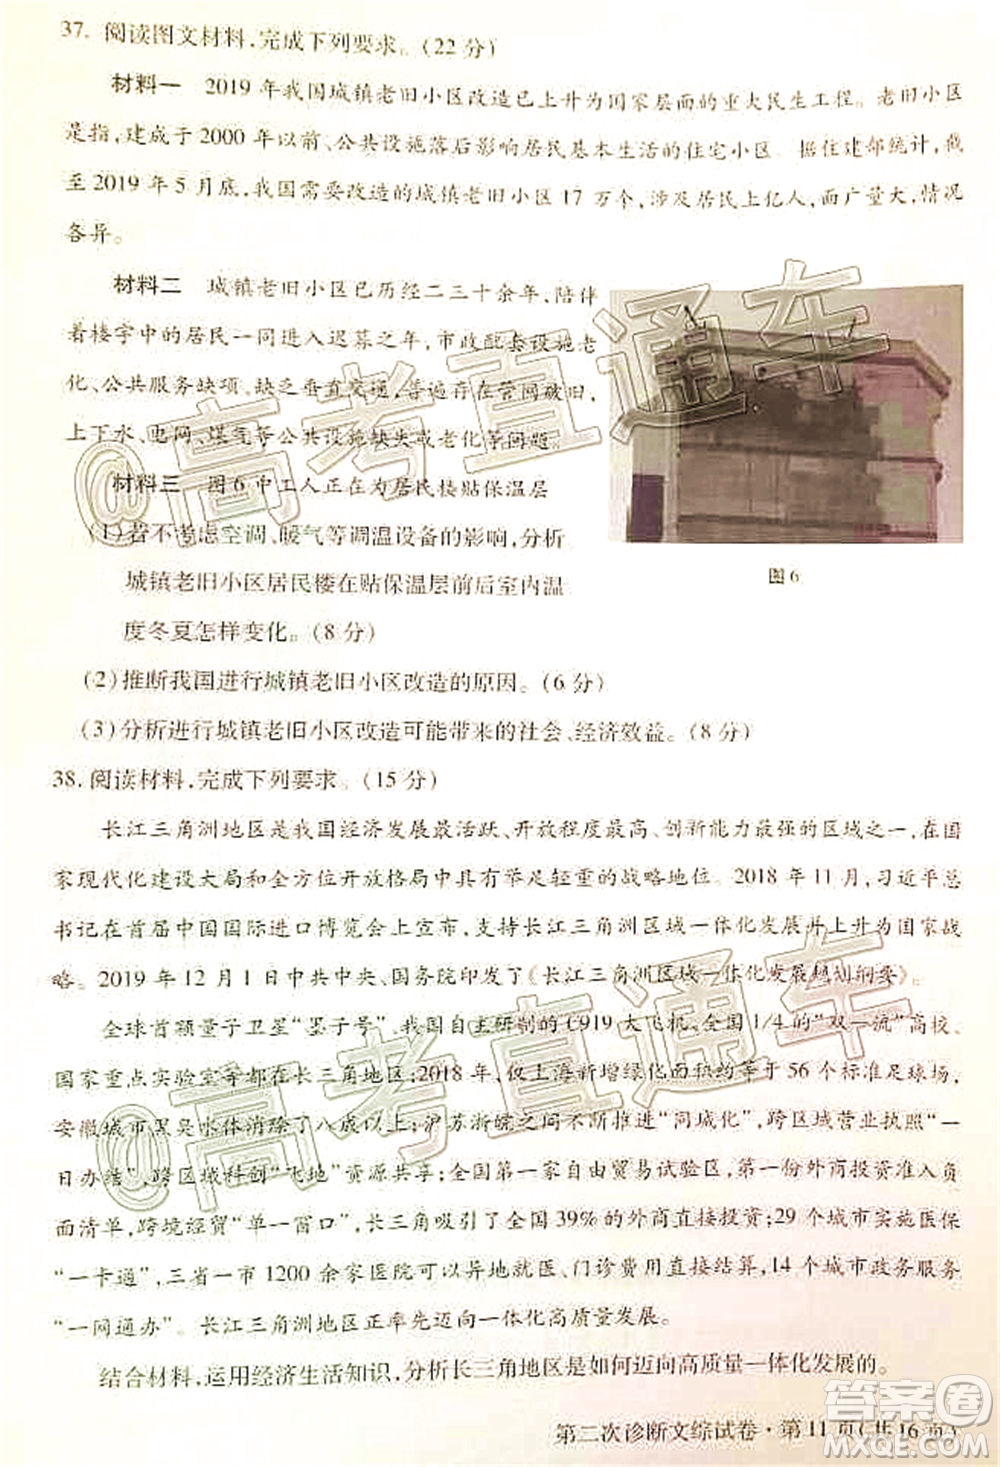 37. 阅读图文材料,完成下列要求。(22 分)
材料一 2019 年我国城镇老旧小区改造已上升为国家层面的重大民生工程。老旧小区
是指,建成于 2000 年以前、公共设施落后影响居民基本生活的住宅小区。据住建部统计,截
至 2019 年 5 月底,我国需要改造的城镇老旧小区 17 万个,涉及居民上亿人,面广量大,情况
各异。
材料二 城镇老旧小区已历经二三十余年,陪伴
着楼宇中的居民一同进入迟暮之年,市政配套设施老
化、公共服务缺项、缺乏垂直交通,普遍存在管网破旧,
上下水、电网、煤气等公共设施缺失或老化等问题。
材料三 图 6 中工人正在为居民楼贴保温层
(1)若不考虑空调、暖气等调温设备的影响,分析
城镇老旧小区居民楼在贴保温层前后室内温
度冬夏怎样变化。(8 分)
图 6
(2)推断我国进行城镇老旧小区改造的原因。(6 分)
(3)分析进行城镇老旧小区改造可能带来的社会、经济效益。(8 分)
38. 阅读材料,完成下列要求。(15 分)
长江三角洲地区是我国经济发展最活跃、开放程度最高、创新能力最强的区域之一,在国
家现代化建设大局和全方位开放格局中具有举足轻重的战略地位。2018 年 11 月,习近平总
书记在首届中国国际进口博览会上宣布,支持长江三角洲区域一体化发展并上升为国家战
略。2019 年 12 月 1 日中共中央、国务院印发了《长江三角洲区域一体化发展规划纲要》。
全球首颗量子卫星“墨子号”、我国自主研制的 C919 大飞机、全国 1/4 的“双一流”高校、
国家重点实验室等都在长三角地区;2018 年,仅上海新增绿化面积等于 56 个标准足球场,
安徽城市黑臭水体消除了八成以上;沪苏浙皖不断推进“同城化”,跨区域营业执照“一
日办结”,跨区域科创“飞地”资源共享;全国第一家自由贸易试验区,第一份外商投资准入负
面清单,跨境经贸“单一窗口”,长三角吸引了全国 39% 的外商直接投资;29 个城市实施医保
“一卡通”,三省一市 1200 余家医院可以异地就医、门诊费用直接结算,14 个城市政务服务
“一网通办”。长江三角洲地区正率先迈向一体化高质量发展。
结合材料,运用经济生活知识,分析长三角地区是如何迈向高质量一体化发展的。
第二次诊断文综试卷·第 11 页(共 16 页)
@高考直通车
@高考直通车
答案圈
MXQE.COM